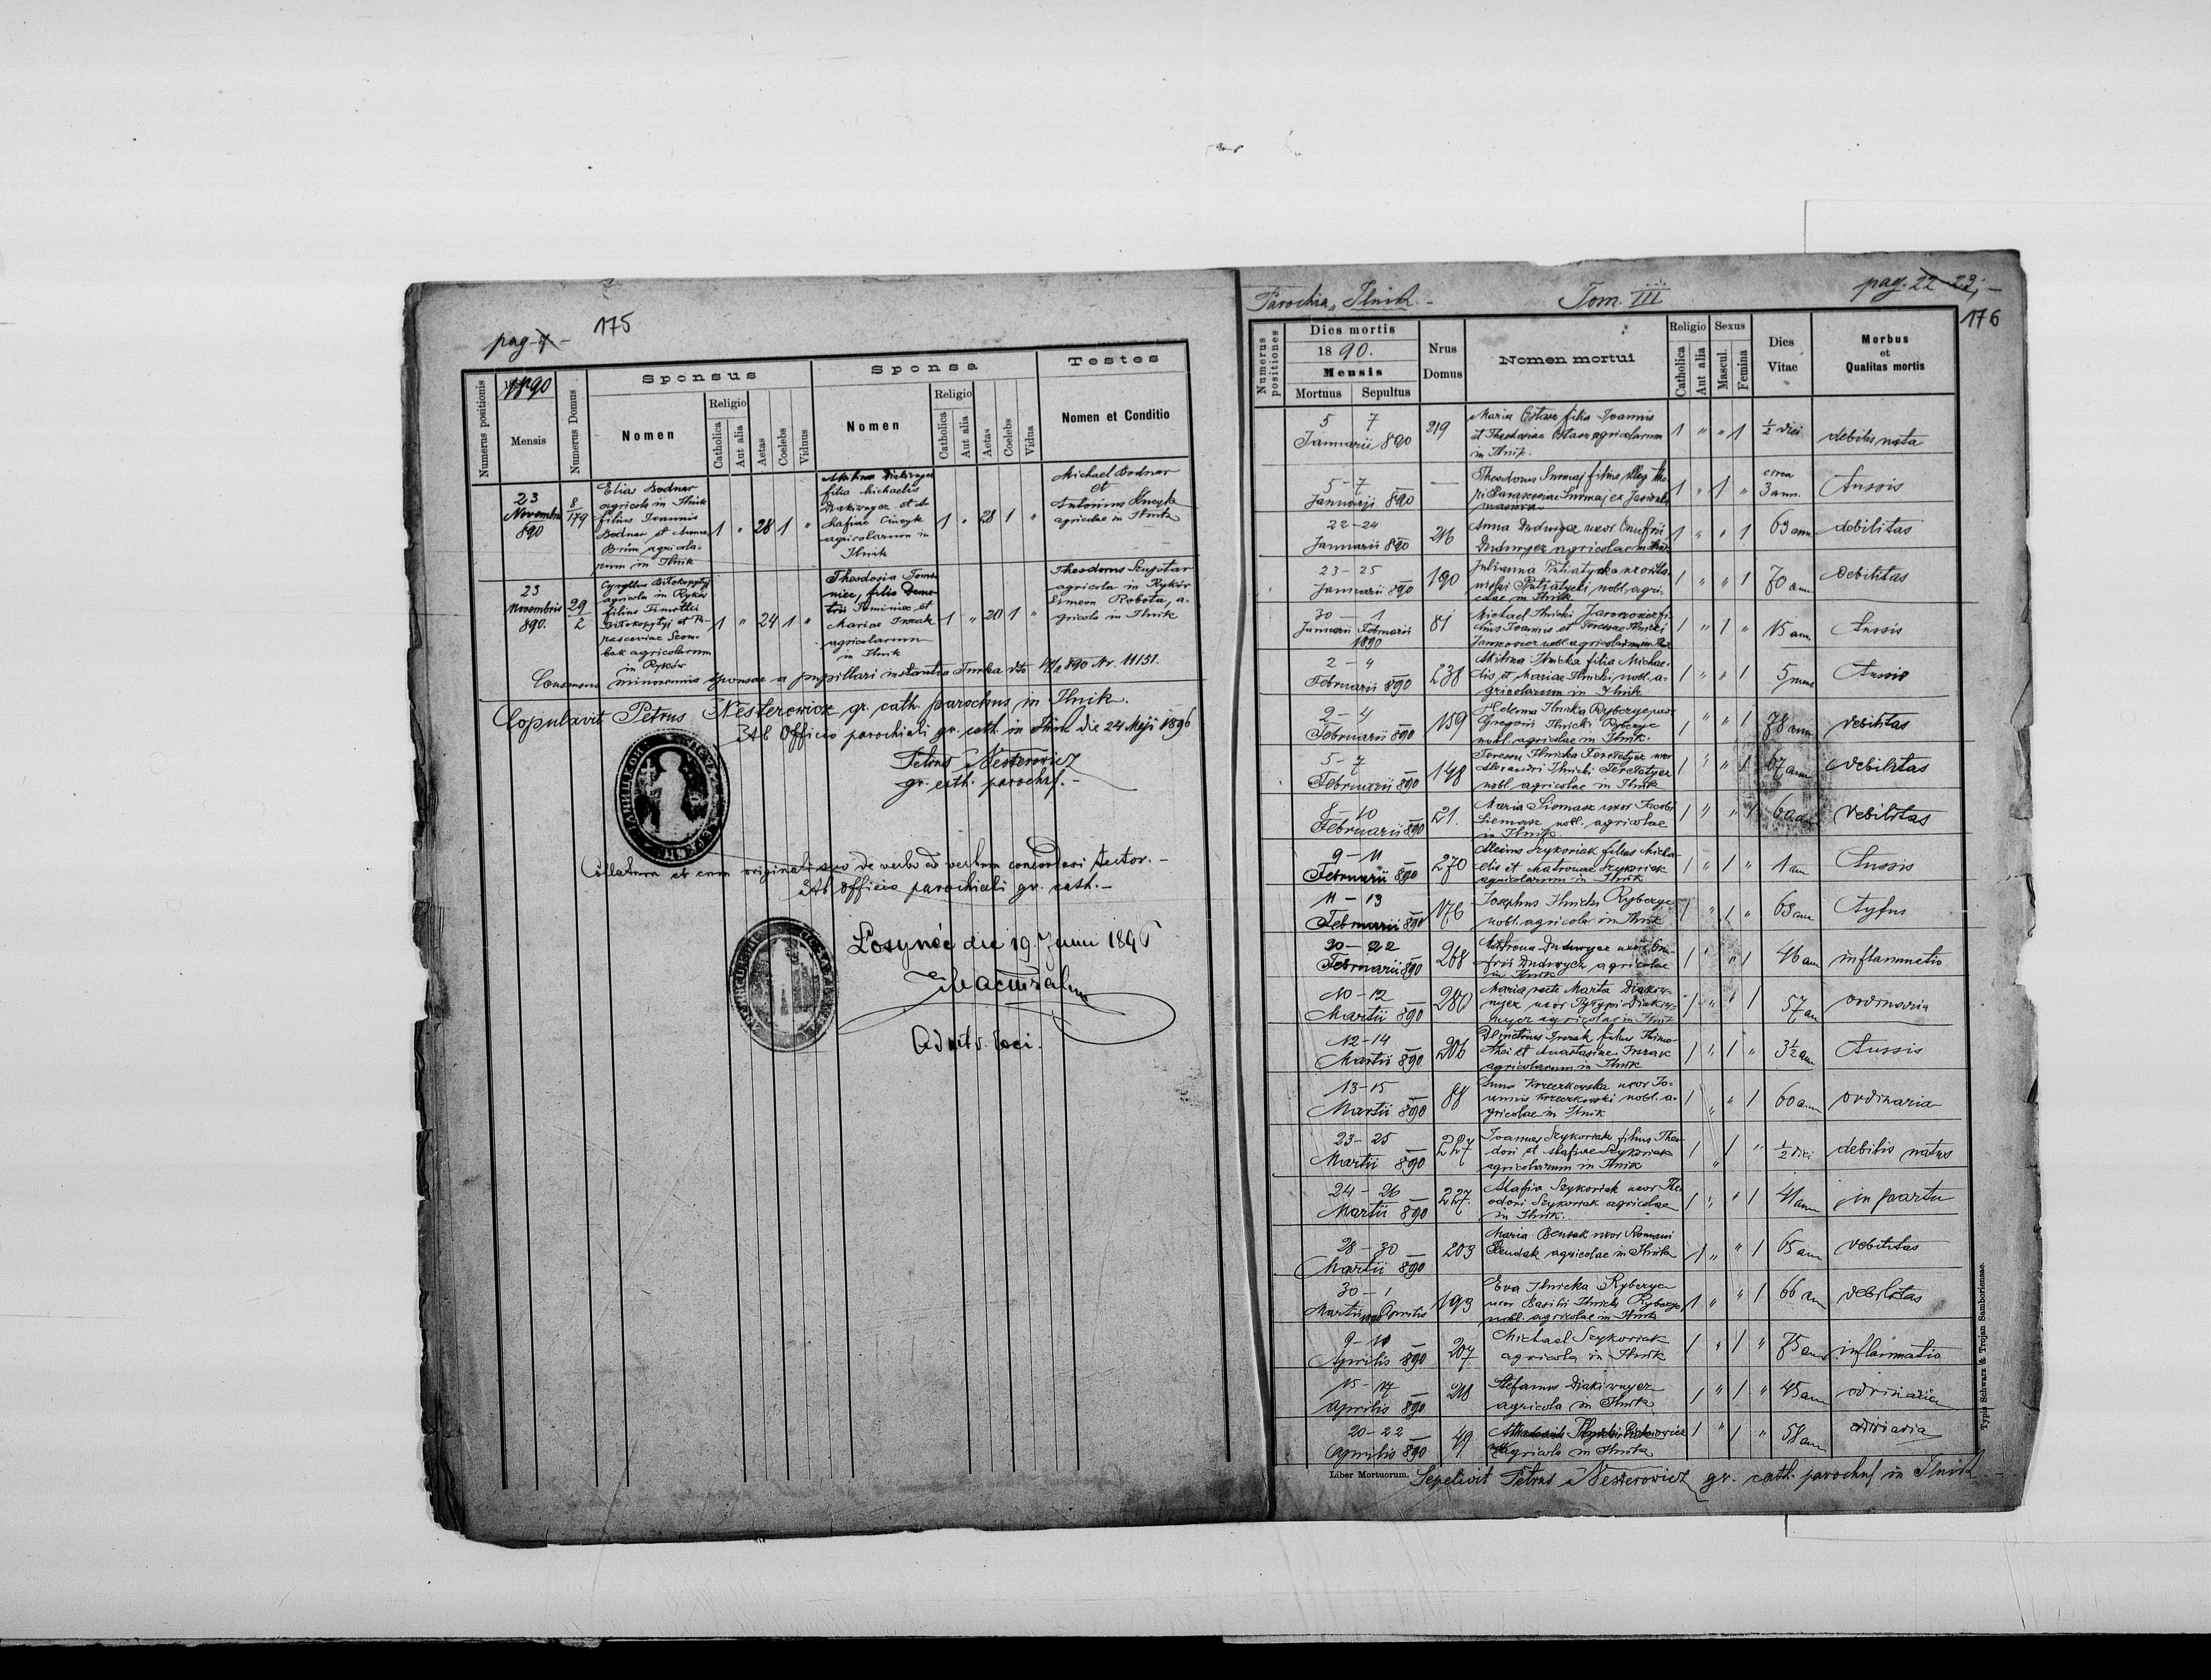 175
pag. 7
Numerus positionis
1890
Mensis
Numerus Domus
Sponsus
Nomen
Religio
Catholica
Aut alia
Aetas
Coelebs
Viduus
Sponsa
Nomen
Religio
Catholica
Aut alia
Aetas
Coelebs
Vidua
Testes
Nomen et Conditio
23
Novembris
890
8
179
Elias Bodnar
agricola in Ilnik
filius Joannis
Bodnar et Annae
agricola-
rum in Ilnik
1 " 28 1 "
filia Michaelis
et A-
hafiae
agricolarum in
Ilnik
1 " 28 1 "
Michael Bodnar
et
Antonius
agricolae in Ilnik
23
Novembris
890.
29
2
Cyryllus Bitokopytyj
agricola in Ryków
filius Timothei
Bitokopytyj et Pa-
rasceviae
agricolarum
in Ryków
1 " 24 1 "
Theodosia
filia Deme-
trii et
Mariae Irzak
agricolarum
in Ilnik
1 " 20 1 "
Theodorus
agricola in Ryków
Simeon Robota, a-
gricola in Ilnik
Consensus minorennis sponsae a pupillari instantia Turka dto 890 Nr. 11151.
Copulavit Petrus Nesterowicz gr. cath. parochus in Ilnik.
Ab Officio parochiali gr. cath. in Ilnik die 24 Maji 1896
Petrus Nesterowicz
gr. cath. parochus.
Collatum cum originali suo de verbo ad verbum concordari testor.
Ab officio parochiali gr. cath.
Łosyneć die 19. Junii 1896
Admtr. loci.
Parochia Ilnik.
Tom. III
pag. 22-23;
176
Numerus positiones
Dies mortis
1890.
Mensis
Mortuus
Sepultus
Nrus Domus
Nomen mortui
Religio
Catholica
Aut alia
Sexus
Mascul.
Femina
Dies Vitae
Morbus
et
Qualitas mortis
5 7
Januarii 890
219
Maria filia Joannis
et Theodoriae agricolarum
in Ilnik.
1 " " 1
½ diei
debilis nata
5-7
Januarii 890
Theodorus Surmaj filius illeg.
Parasceviae Surmaj ex
1 " 1 "
circa
3 ann.
Tussis
22-24
Januarii 890
216
Anna Dudwycz uxor Onufrii
Dudwycz agricolae in Ilnik
1 " " 1
63 ann
debilitas
23-25
Januarii 890
190
Julianna Putiatycka uxor
Putiatycki nobl. agri-
colae in Ilnik
1 " " 1
70 ann
debilitas
30 - 1
Januarii Februarii
1890
81
Michael Ilnicki fi-
lius Joannis et Teresae Ilnicki
nobl. agricolarum in
1 " 1 "
15 ann
Tussis
2-4
Februarii 890
238
Akilina Ilnicka filia Michae-
lis et Mariae Ilnicki, nobl. a-
gricolarum in Ilnik
1 " " 1
5 mens
Tussis
2-4
Februarii 890
159
Helena Ilnicka Ryberyc uxor
Gregorii Ilnicki Ryberyc
nobl. agricolae in Ilnik.
1 " " 1
78 ann
debilitas
5-7
Februarii 890
148
Teresa Ilnicka uxor
Alexandri Ilnicki
nobl. agricolae in Ilnik
1 " " 1
67 ann
debilitas
8-10
Februarii 890
21.
Maria Siemasz uxor Jacobi
Siemasz nobl. agricolae
in Ilnik
1 " " 1
debilitas
9-11
Februarii 890
270
Alexius Szykoriak filius Micha-
elis et Matronae Szykoriak
agricolarum in Ilnik
1 " 1 "
1 ann
Tussis
11-13
Februarii 890
176
Josephus Ilnicki Ryberyc
nobl. agricola in Ilnik
1 " 1 "
63 ann
tyfus
20-22
Februarii 890
268
Matrona Dudwycz uxor Onu-
frii Dudwycz agricolae
in Ilnik
1 " " 1
46 ann
inflammatio
10-12
Martii 890
280
Maria recte Marta
uxor
agricolae in Ilnik
1 " " 1
57 ann
ordinaria
12-14
Martii 890
206
Dimetrius Irzak filius Thimo-
thei et Anastasiae Irzak
agricolarum in Ilnik
1 " 1 "
3½ ann
Tussis
13-15
Martii 890
88
Anna Krzeczkowska uxor Jo-
annis Krzeczkowski nobl. a-
gricolae in Ilnik
1 " " 1
60 ann
ordinaria
23-25
Martii 890
227
Joannes Szykoriak filius Theo-
dori et Ahafiae Szykoriak
agricolarum in Ilnik
1 " 1 "
½ diei
debilis natus
24-26
Martii 890
227.
Ahafia Szykoriak uxor The-
odori Szykoriak agricolae
in Ilnik.
1 " " 1
41 ann
in partu
28-30
Martii 890
203
Maria Bendak uxor Romani
Bendak agricolae in Ilnik
1 " " 1
65 ann
debilitas
30 - 1
Martii Aprilis
193
Eva Ilnicka Ryberyc
uxor Basilii Ilnicki Ryberyc
nobl. agricolae in Ilnik
1 " " 1
66 ann
debilitas
9-10
Aprilis 890
207
Michael Szykoriak
agricola in Ilnik
1 " 1 "
75 ann
inflammatio
15-17
Aprilis 890
218
Stefanus
agricola in Ilnik
1 " 1 "
45 ann
ordinaria
20-22
Aprilis 890
49
agricola in Ilnik
1 " 1 "
58 ann
ordinaria
Liber Mortuorum.
Sepelivit Petrus Nesterowicz gr. cath. parochus in Ilnik
Typis Schwarz & Trojan Samboriensae.